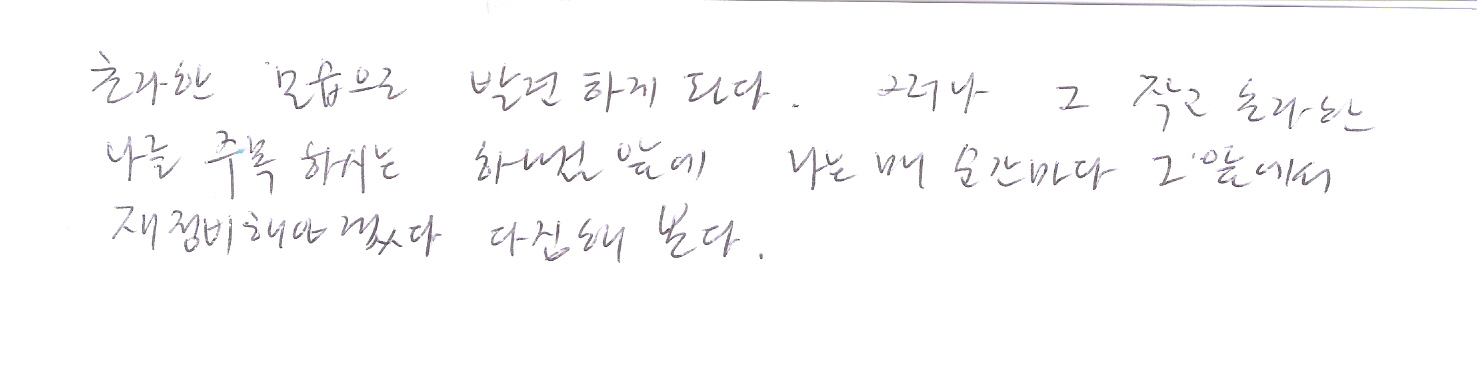 초라한 모습으로 발견 하게 된다. 그러나 그 작고 초라한
나를 주목 하시는 하나님 앞에 나는 매 순간마다 그 앞에서
재정비해야 겠다 다짐해 본다.